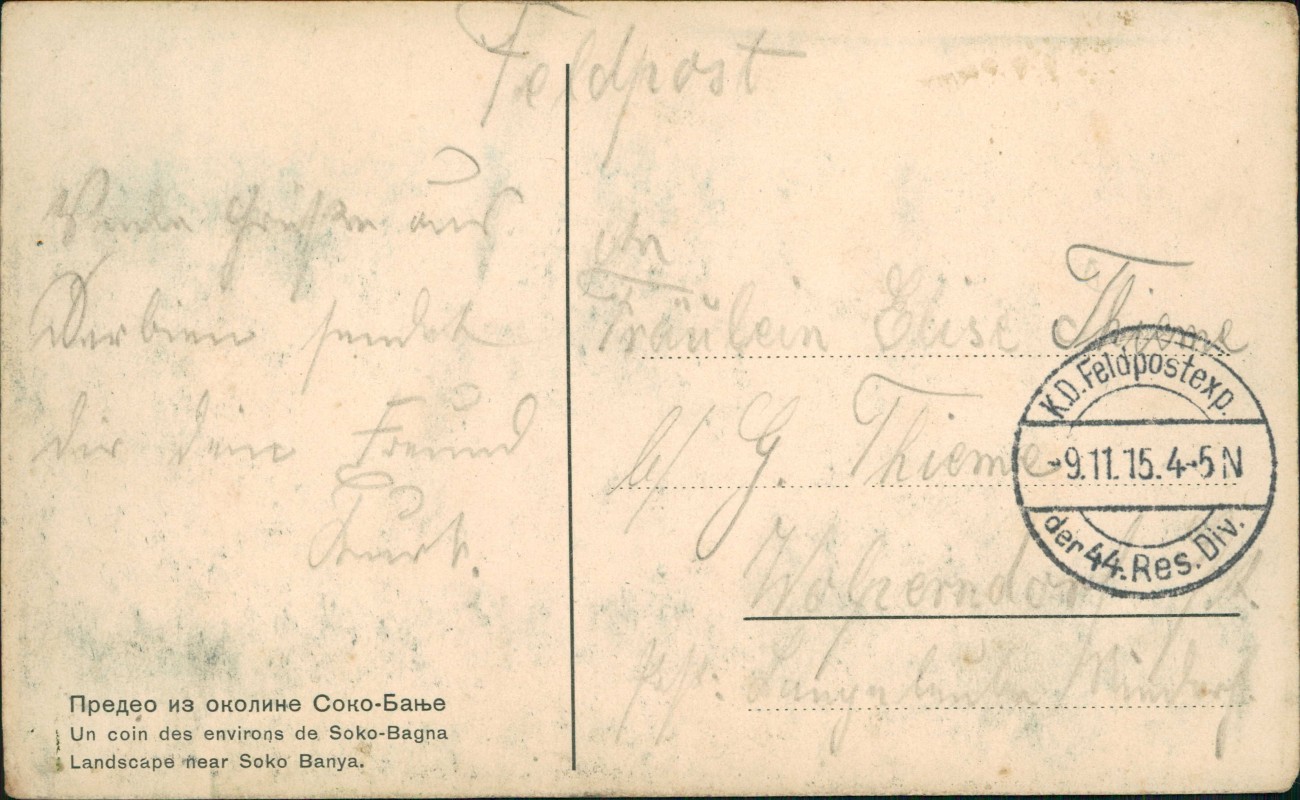 Feldpost
Viele Grüße aus
Serbien sendet
dir dein Freund
Kurt.
An
Fräulein Elise Thieme
b/ G. Thieme
K.D. Feldpostexp.
-9.11.15. 4-5 N
der 44. Res. Div.
Предео из околине Соко-Бање
Un coin des environs de Soko-Bagna
Landscape near Soko Banya.